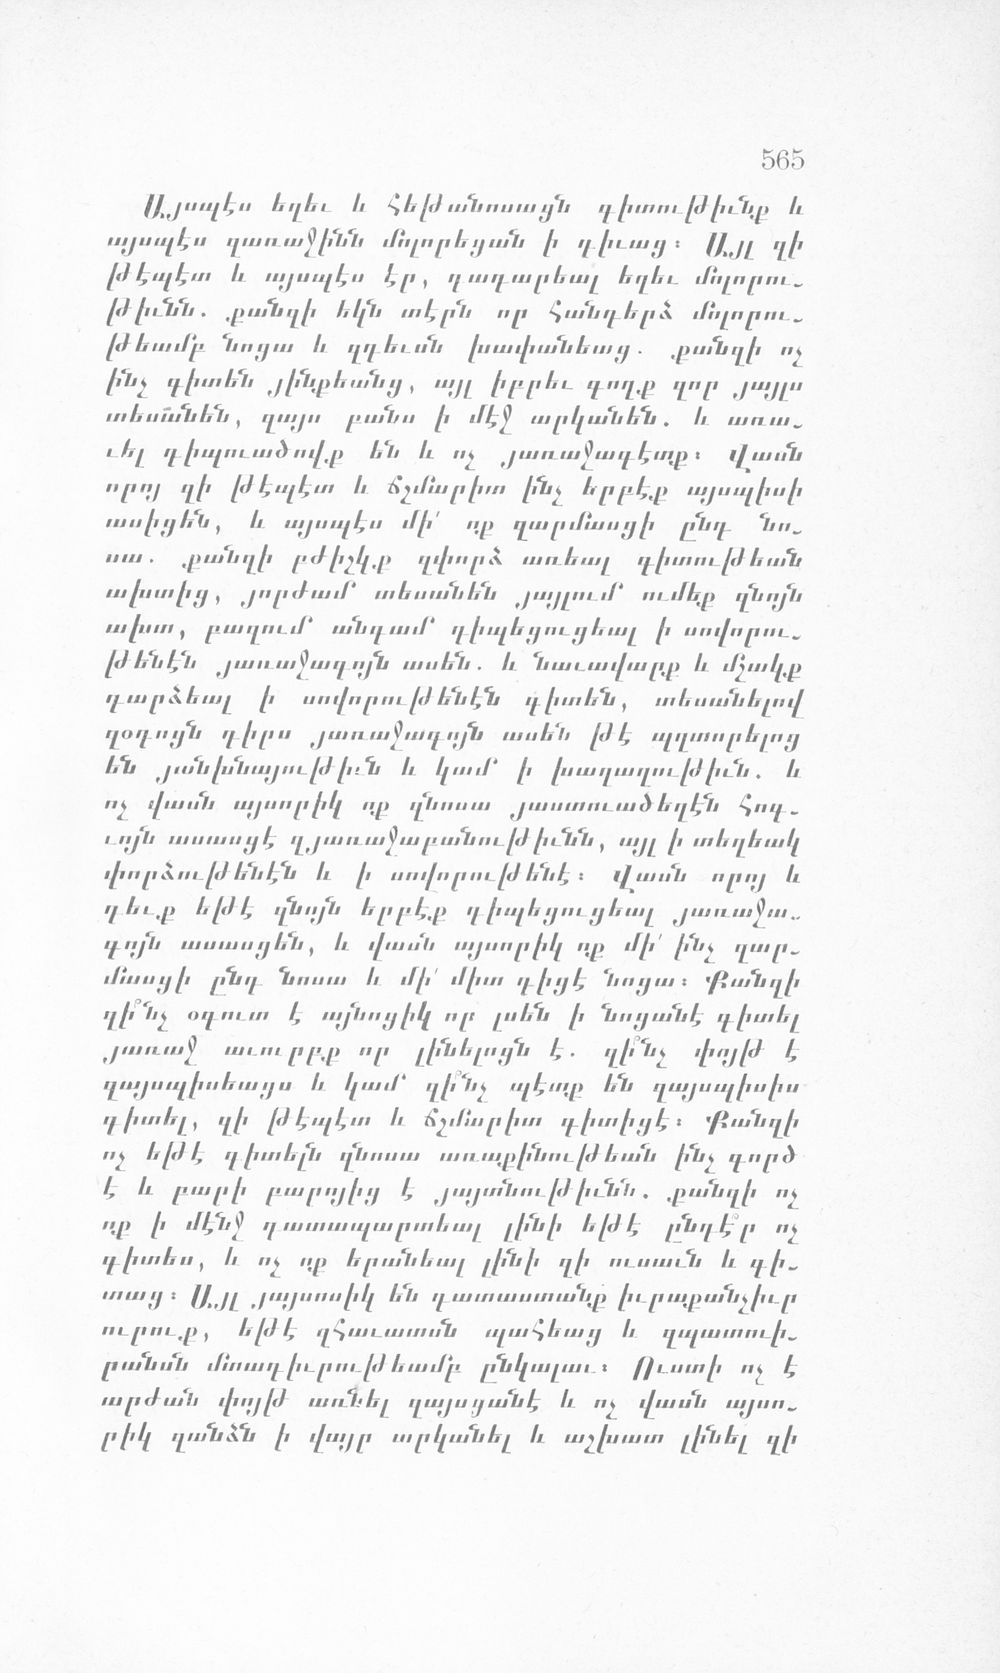 565
Այսպէս եղեւ և հեթանոսացն գիտութիւնք և
այսպէս զառաջինն մոլորեցան ի դիւաց։ Այլ զի
թէպէտ և այսպէս էր, դադարեալ եղեւ մոլորու-
թիւնն. քանզի եկն տէրն որ հանդերձ մոլորու-
թեամբ նոցա և զդեւսն խափանեաց. քանզի ոչ
ինչ գիտեն յինքեանց, այլ իբրեւ գողք զոր յայլս
տեսանեն, զայս բանս ի մէջ արկանեն. և առա-
ւել դիպուածովք են և ոչ յառաջագէտք։ Վասն
որոյ զի թէպէտ և ճշմարիտ ինչ երբէք այսպիսի
ասիցեն, և այսպէս մի՛ ոք զարմասցի ընդ նո-
սա. քանզի բժիշկք զփորձ առեալ գիտութեան
ախտից, յորժամ տեսանեն յայլում ումեք զնոյն
ախտ, բազում անգամ դիպեցուցեալ ի սովորու-
թենէն յառաջագոյն ասեն. և նաւավարք և մշակք
դարձեալ ի սովորութենէն գիտեն, տեսանելով
զօդոցն դիրս յառաջագոյն ասեն թէ պղտորելոց
են յանխնայութիւն և կամ ի խաղաղութիւն. և
ոչ վասն այսորիկ ոք զնոսա յաստուածեղէն հոգ-
ւոյն ասասցէ զյառաջաբանութիւնն, այլ ի տեղեակ
փորձութենէն և ի սովորութենէ։ Վասն որոյ և
դեւք եթէ զնոյն երբէք դիպեցուցեալ յառաջա-
գոյն ասասցեն, և վասն այսորիկ ոք մի՛ ինչ զար-
մասցի ընդ նոսա և մի՛ միտ դիցէ նոցա։ Քանզի
զի՞նչ օգուտ է այնոցիկ որ լսեն ի նոցանէ գիտել
յառաջ աւուրբք որ լինելոցն է. զի՞նչ փոյթ է
զայսպիսեացս և կամ զի՞նչ պէտք են զայսպիսիս
գիտել, զի թէպէտ և ճշմարիտ գիտիցէ։ Քանզի
ոչ եթէ գիտելն զնոսա առաքինութեան ինչ գործ
է և բարի բարոյից է յայտնութիւնն. քանզի ոչ
ոք ի մէնջ դատապարտեալ լինի եթէ ընդէ՞ր ոչ
գիտես, և ոչ ոք երանեալ լինի զի ուսաւն և գի-
տաց։ Այլ յայսոսիկ են դատաստանք իւրաքանչիւր
ուրուք, եթէ զհաւատսն պահեաց և զպատուի-
րանսն մտադիւրութեամբ ընկալաւ։ Ուստի ոչ է
արժան փոյթ առնել զայսցանէ և ոչ վասն այսո-
րիկ զանձն ի վայր արկանել և աշխատ լինել զի